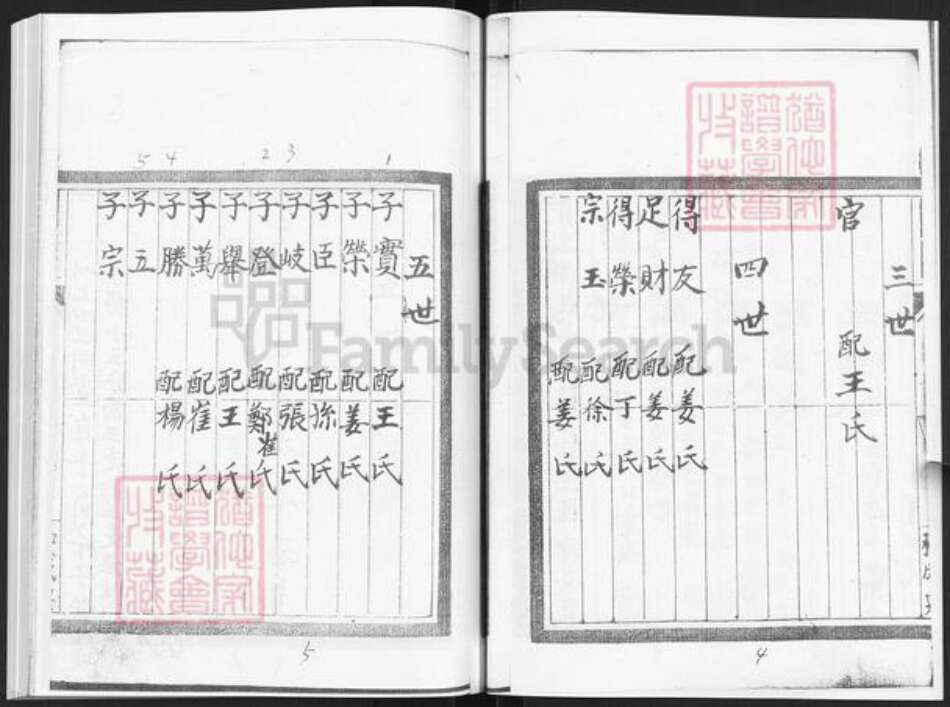 三世
官 配王氏
四世
得友 配姜氏
足財 配姜氏
得榮 配丁氏
宗玉 配徐氏
配姜氏
4
五世
子實 配王氏
子榮 配姜氏
子臣 配孫氏
子岐 配張氏
子登 配鄭崔氏
子舉 配王氏
子萬 配崔氏
子勝 配楊氏
子立
子宗
5 4 2 3 1
5
FamilySearch